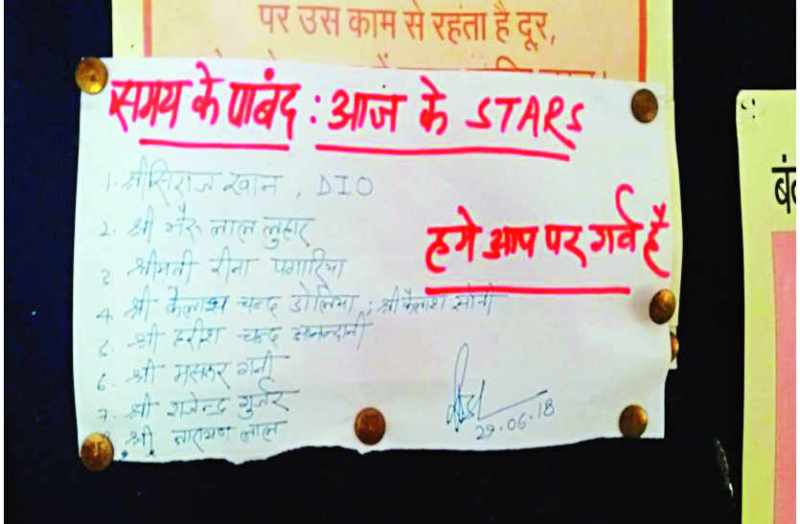 पर उस काम से रहता है दूर,
समय के पाबंद : आज के STARS
1. श्री सिराज खान, DIO
2. श्री भैरू लाल लुहार
हमे आप पर गर्व है
3 श्रीमती रीना पगारिया
4. श्री कैलाश चन्द्र डोलिया, श्री कैलाश सोनी
5. श्री हरीश चन्द्र
6. श्री गनी
7. श्री राजेन्द्र गुर्जर
श्री नारायण लाल
29.06.18